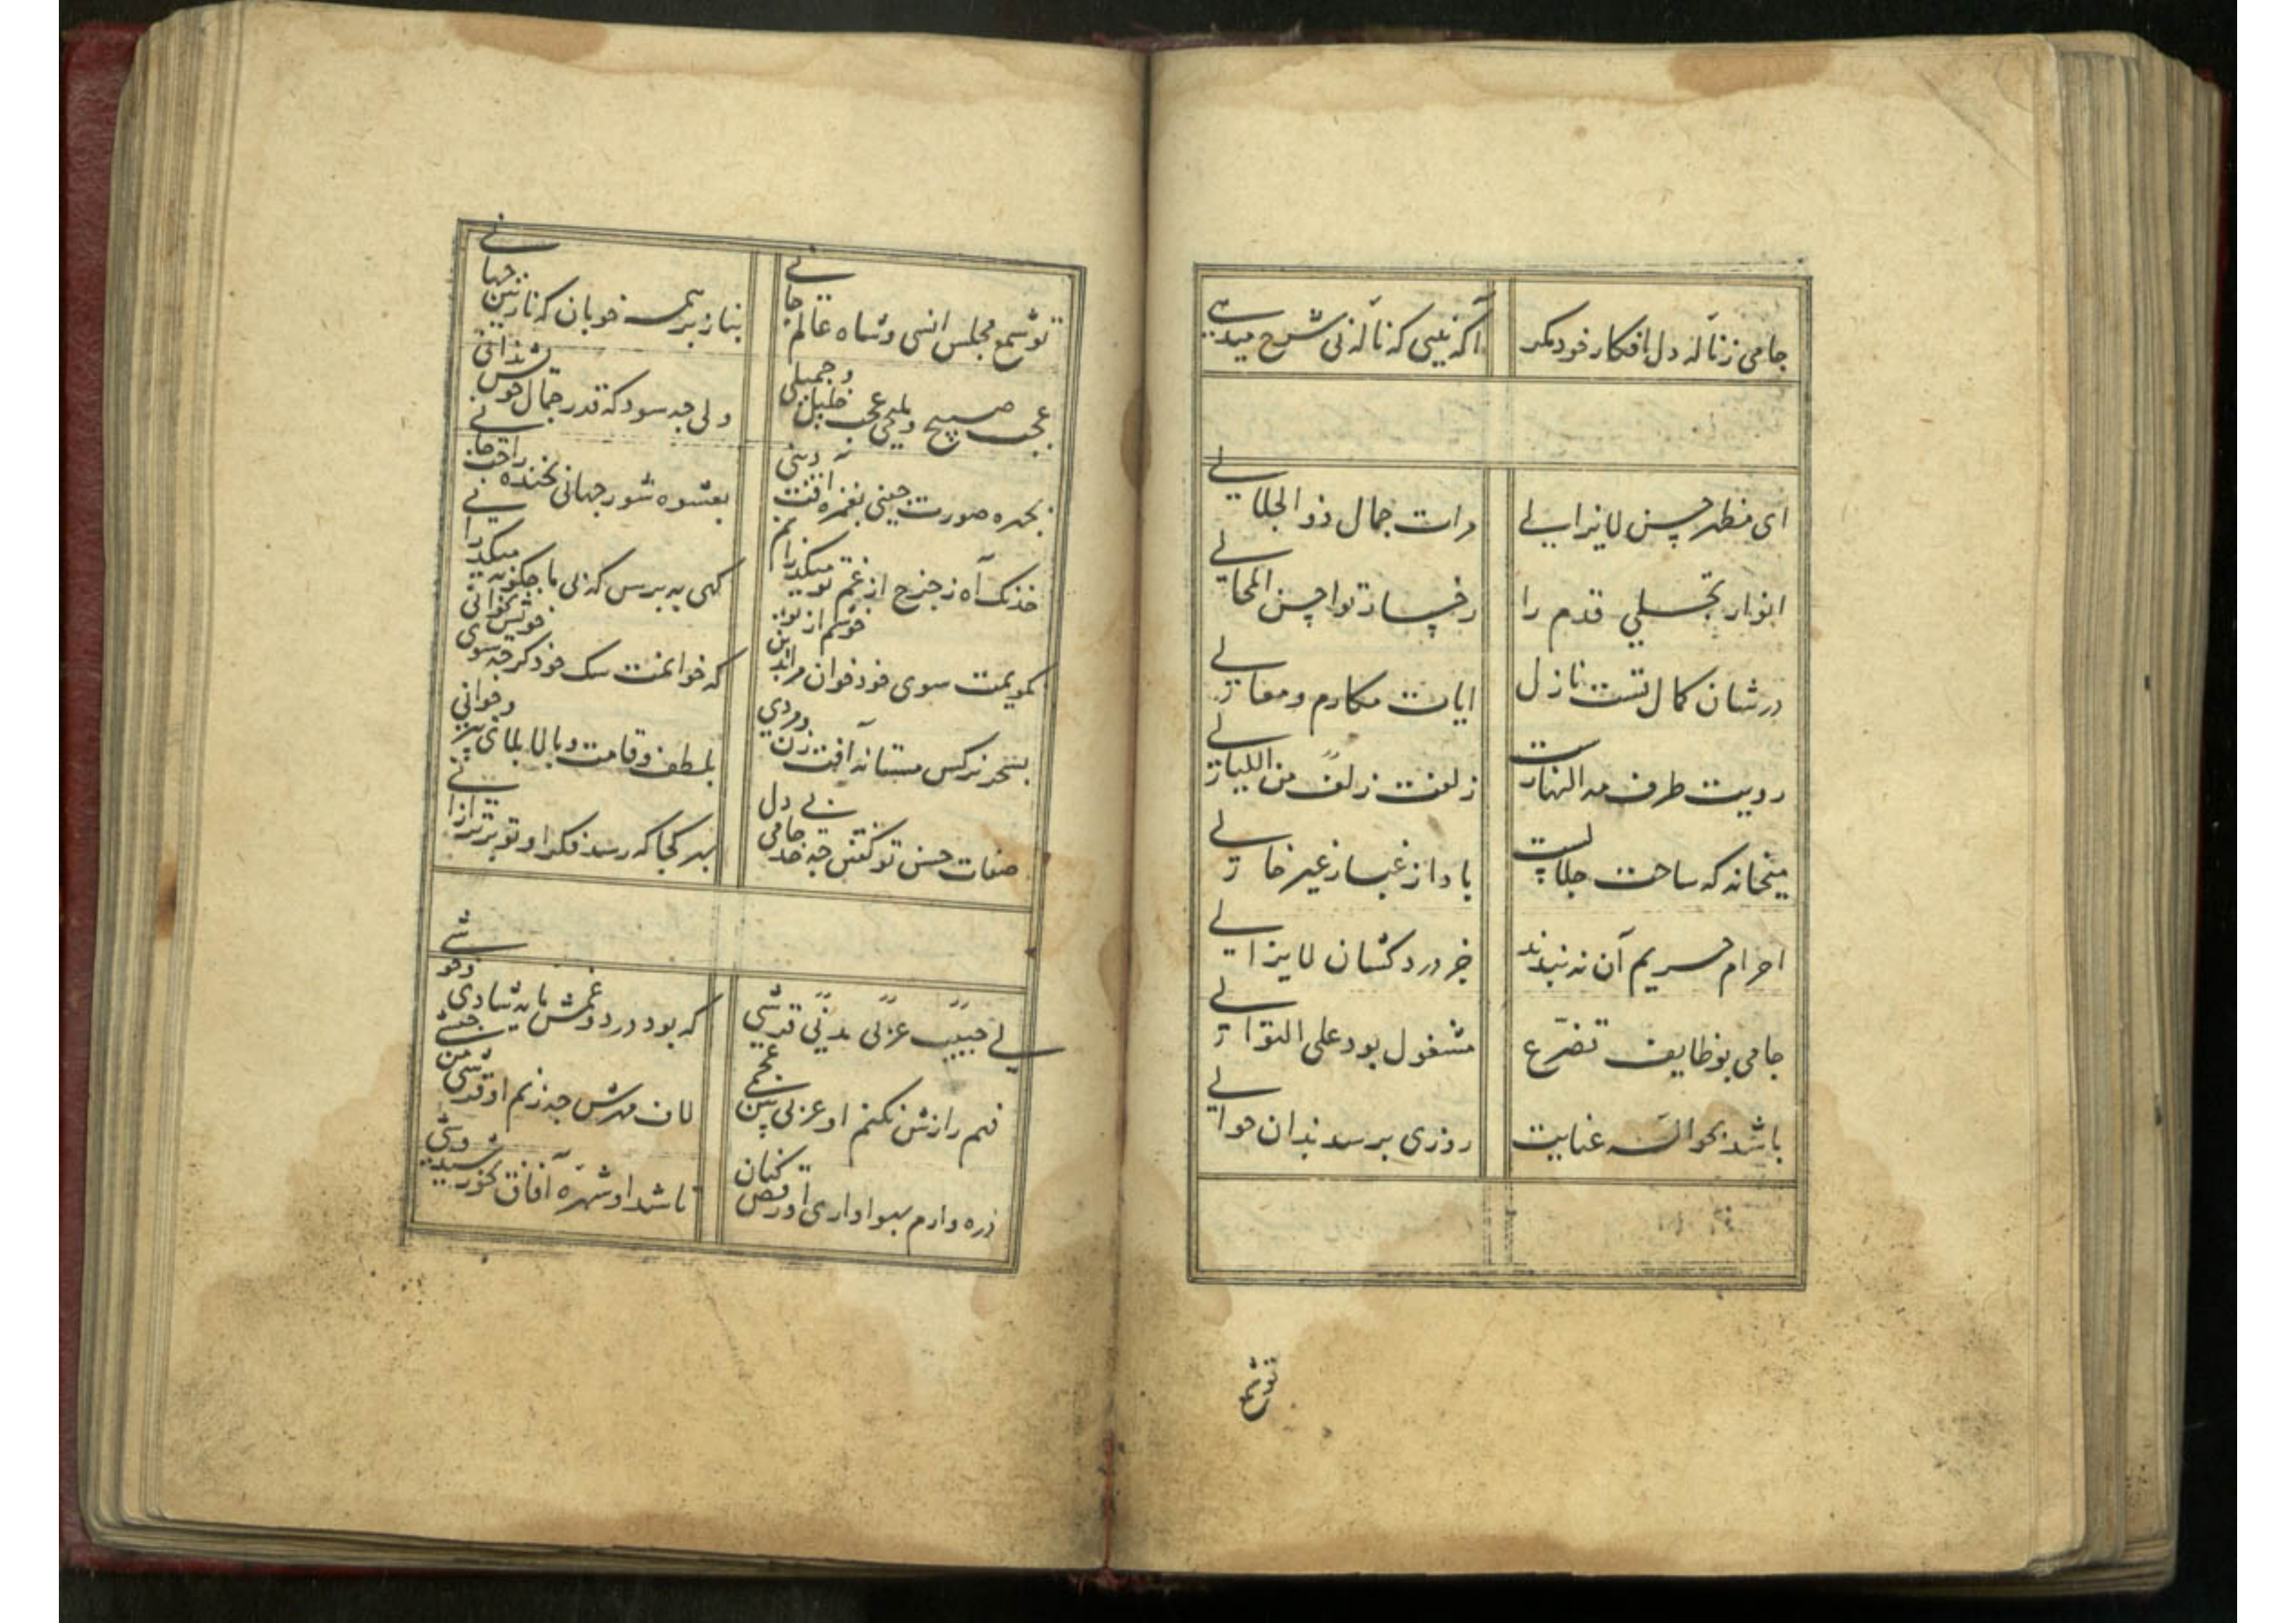 جامی ز ناله دل افکار خود مکر آکه نیی که ناله نی شرح میدهی
ای مظهر حسن لایزالی مرات جمال ذوالجلالی
انوار تجلی قدم را رخسار تو احسن المجالی
در شان کمال تست نازل ایات مکارم و معالی
رویت طرف من النهارست زلفت زلف من اللیالی
میخانه که ساحت جلالست باد از غبار غیر خالی
احرام حریم آن نه بندند جز درد کشان لایزالی
جامی بوظایف تضرع مشغول بود علی التوالی
باشد بحواله عنایت روزی برسد بدان حوالی
تو شمع
تو شمع مجلس انسی و شاه عالم جانی بناز بر همه خوبان که نازنین جهانی
عجب صبیح و ملیحی عجب خلیل و جمیلی ولی چه سود که قدر جمال خویش ندانی
بچهره صورت چینی بغمزه افت دینی بعشوه شور جهانی بخنده راحت جانی
خدنک آه ز چرخ از غم تو میکذرانم کهی نه پرسی که بی ما چکونه میکذرانی
بکویمت سوی خود خوان مرا بدین خوشم از تو که خوانمت سک خود کر چه سوی خویش نخوانی
بسحر نرکس مستانه آفت زن و مردی بلطف و قامت و بالا بلای پیر و جوانی
صفات حسن تو کفتن چه حد جامی بی دل بهر کجا که رسد فکر او تو برتر ازانی
لی حبیب عربی مدنی قرشی که بود درد و غمش مایه شادی و خوشی
فهم رازش نکنم او عربی من عجمی لاف مهرش چه زنم او قرشی من حبشی
ذره وارم بهواداری او رقص کنان تا شد او شهره آفاق بخورشید وشی